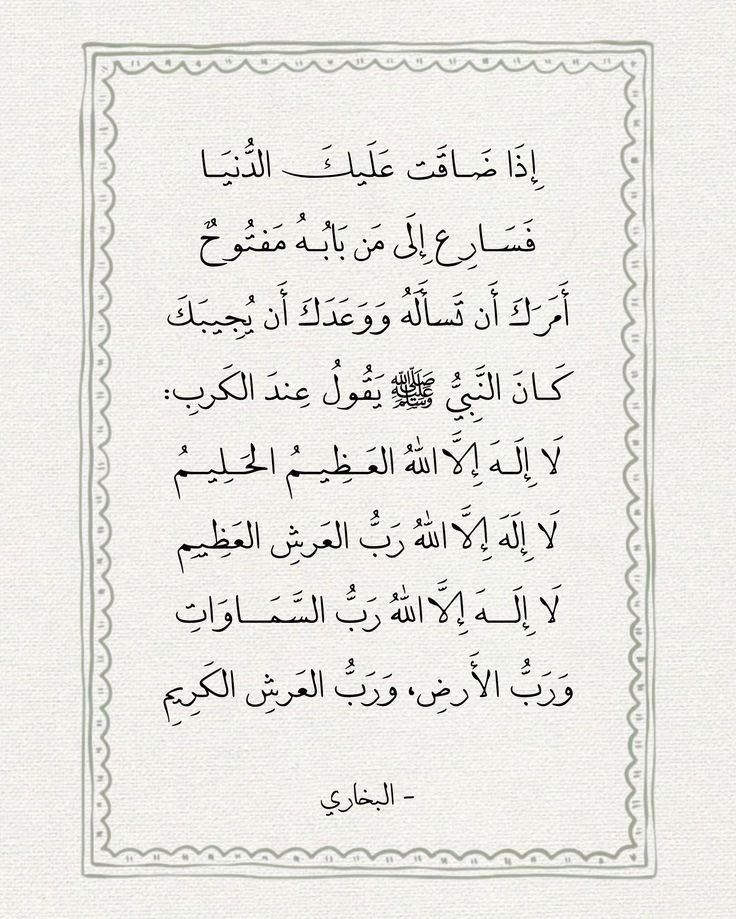 إِذَا ضَـاقَت عَلَيكَ الدُّنيَـا
فَسَـارِع إِلَى مَن بَابُـهُ مَفتُوحٌ
أَمَرَكَ أَن تَسأَلَهُ وَوَعَدَكَ أَن يُجِيبَكَ
كَـانَ النَّبِيُّ ﷺ يَقُولُ عِندَ الكَربِ:
لَا إِلَـهَ إِلَّا اللهُ العَـظِيـمُ الحَـلِيـمُ
لَا إِلَهَ إِلَّا اللهُ رَبُّ العَرشِ العَظِيمِ
لَا إِلَـهَ إِلَّا اللهُ رَبُّ السَّمَـاوَاتِ
وَرَبُّ الأَرضِ، وَرَبُّ العَرشِ الكَرِيمِ
- البخاري